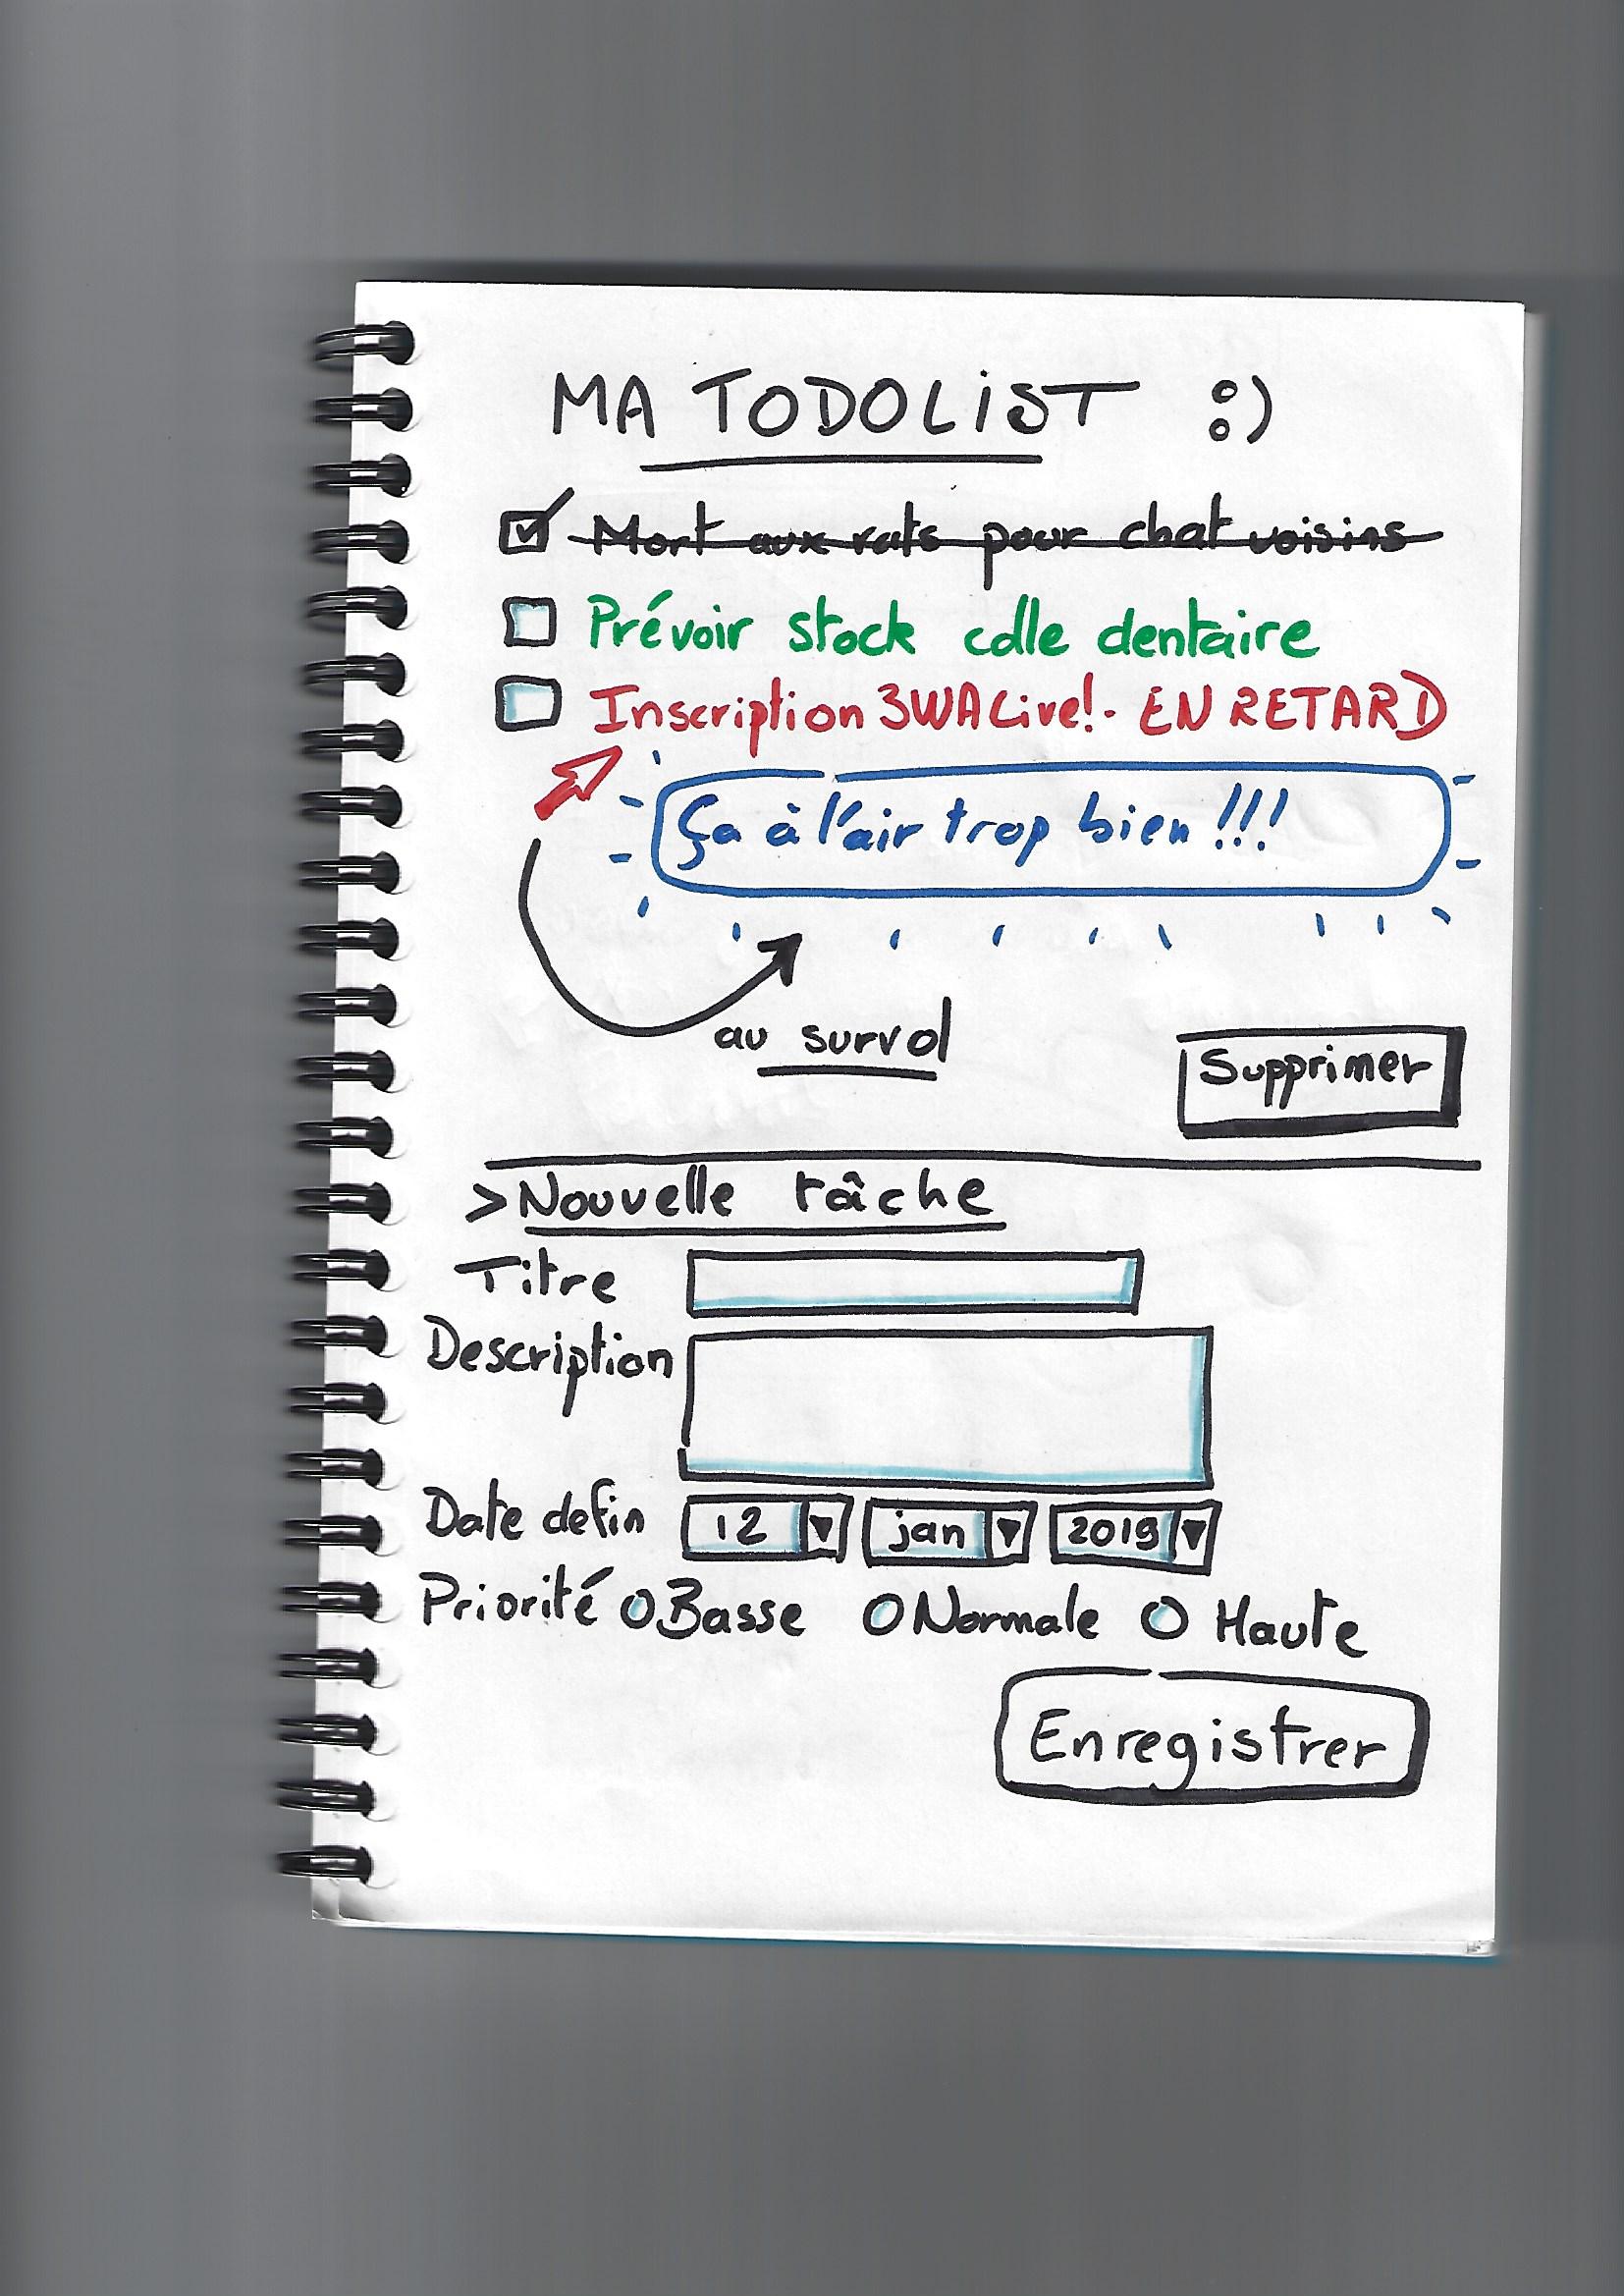 MA TODOLiST :)
Mort aux rats pour chat voisins
Prévoir stock colle dentaire
Inscription 3WA Live! - EN RETARD
Ça à l'air trop bien !!!
au survol
Supprimer
> Nouvelle tâche
Titre
Description
Date de fin 12 jan 2019
Priorité Basse Normale Haute
Enregistrer